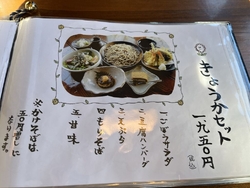 きょうかセット
一、九五〇円
一 ごぼうサラダ
二 豆腐ハンバーグ
三 天ぷら
四 もりそば
五 甘味
※かけそばは、
五〇円増しに
なります。